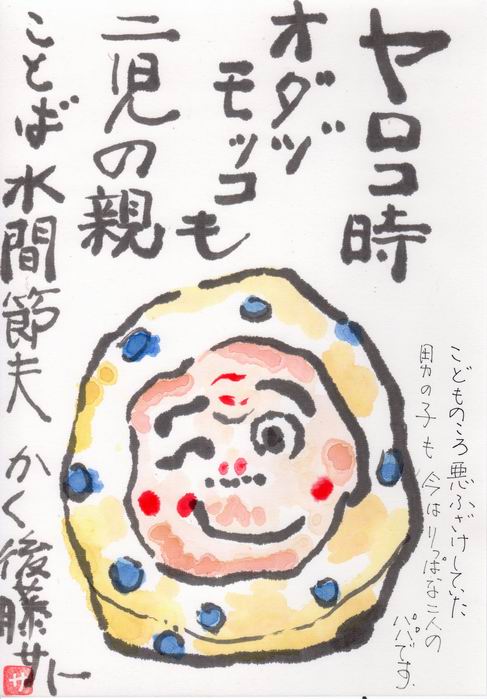 ヤロコ時
オダヅ
モッコも
二児の親
ことば 水間節夫 かく 後藤サト
こどものころ悪ふざけしていた
男の子も 今はりっぱな二人の
パパです。
サ